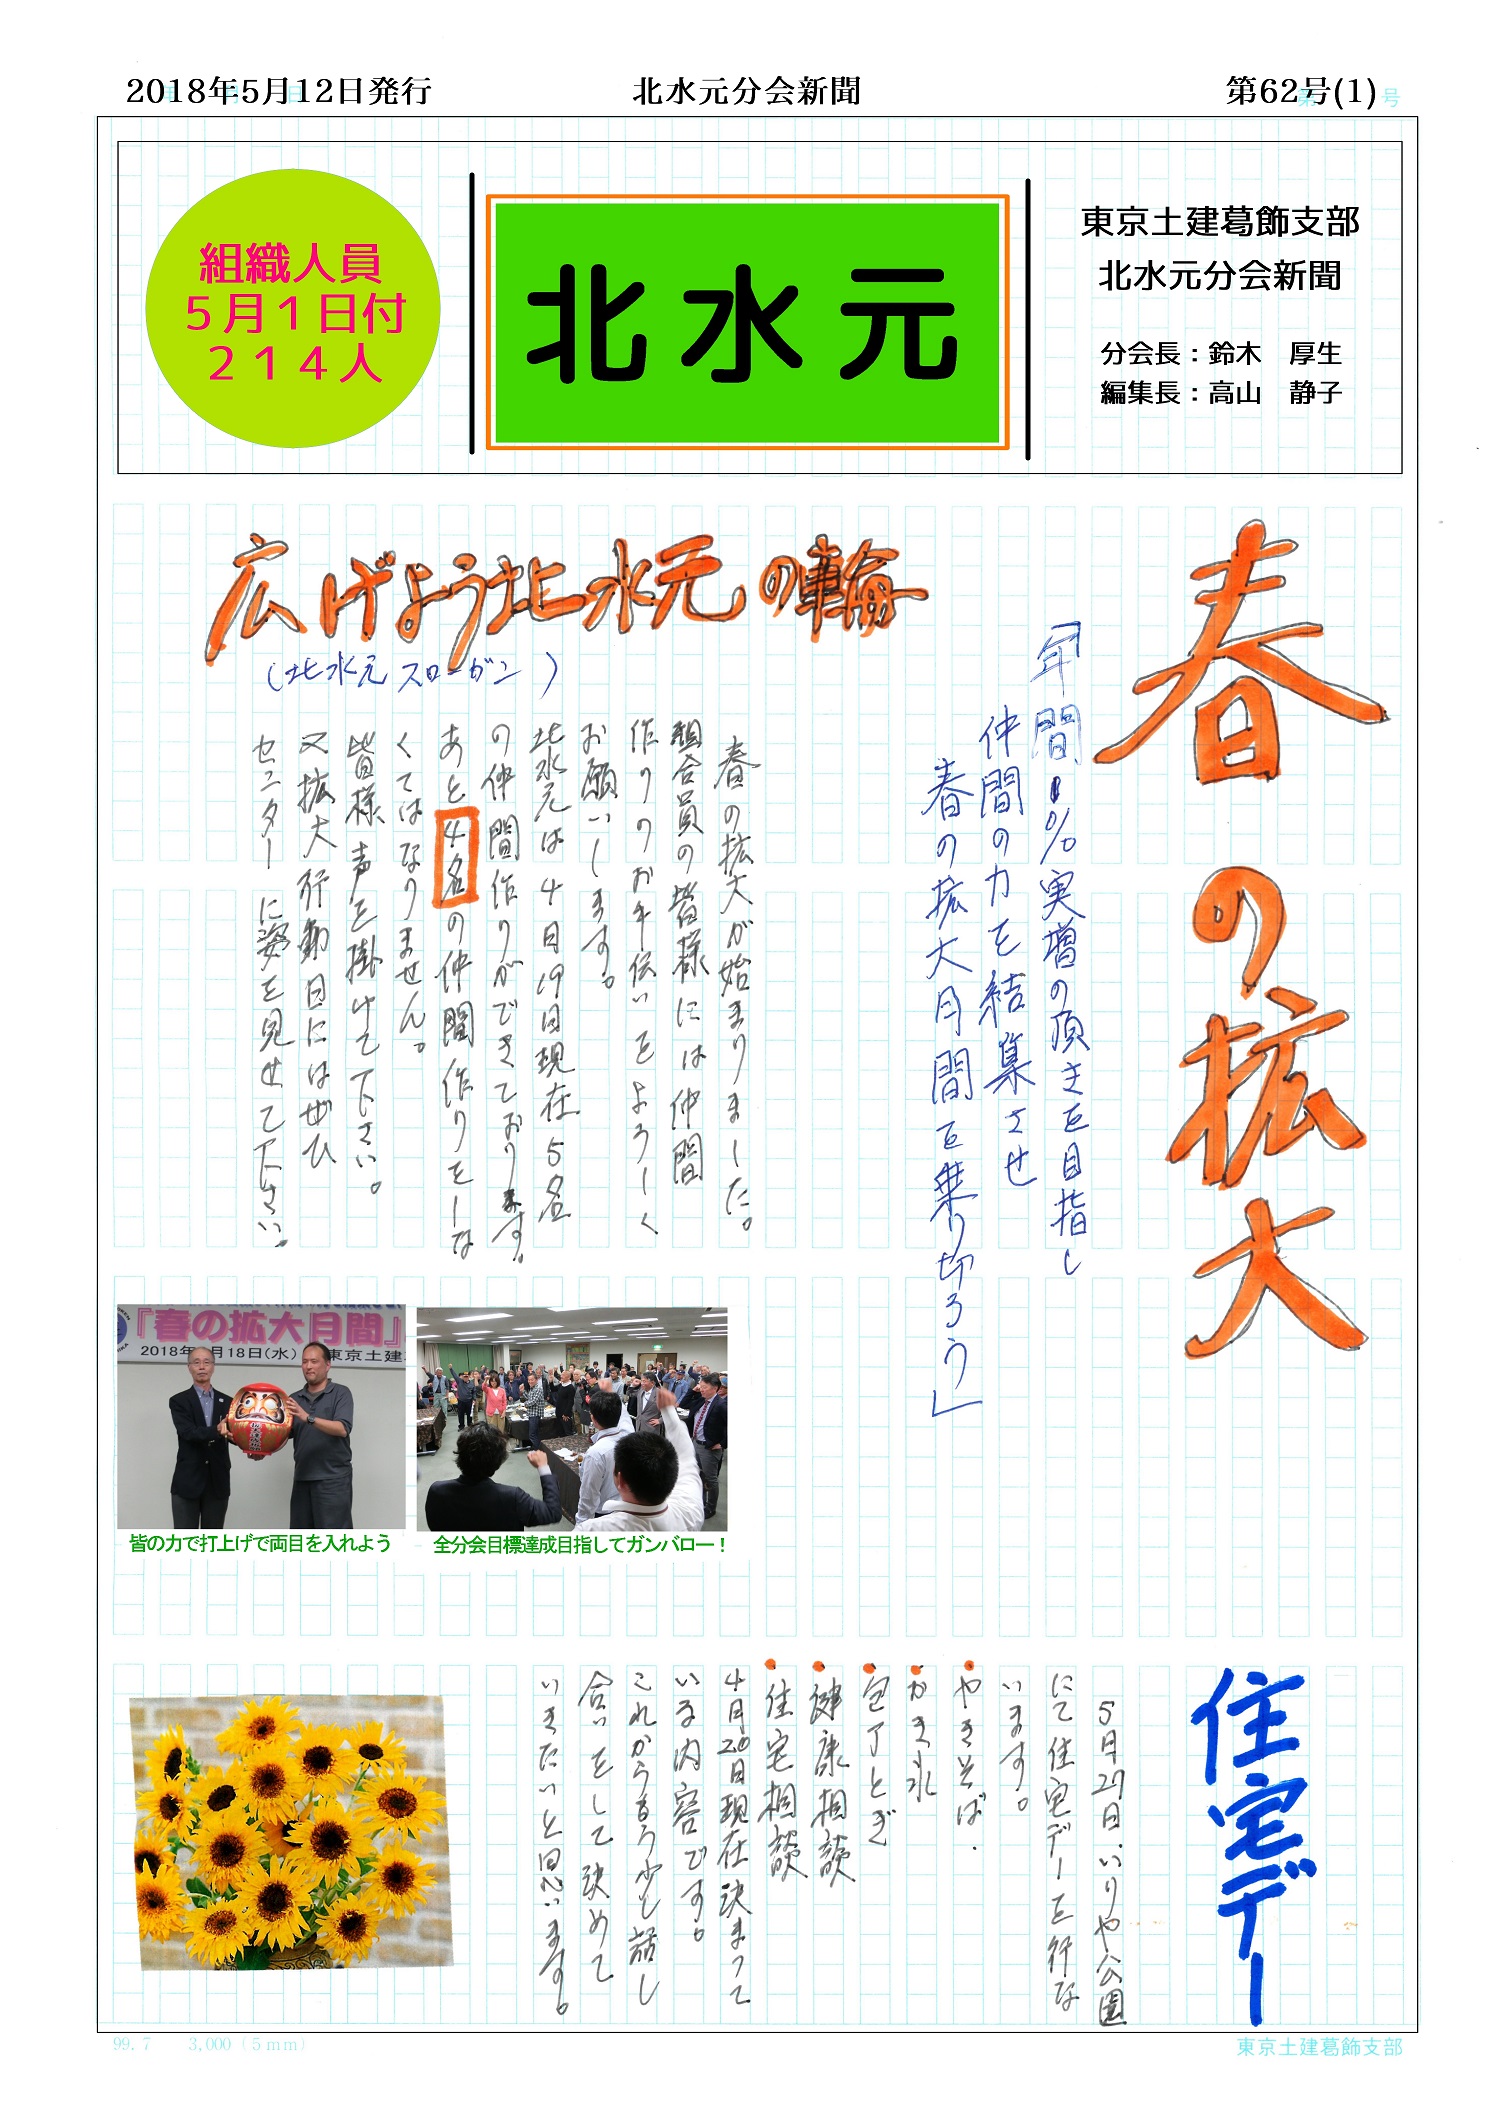 2018年5月12日発行
北水元分会新聞
第62号(1)
号
組織人員
5月1日付
214人
北水元
東京土建葛飾支部
北水元分会新聞
分会長：鈴木　厚生
編集長：高山　静子
春の拡大
「年間1%実増の頂きを目指し
仲間の力を結集させ
春の拡大月間を乗り切ろう」
広げよう北水元の輪
（北水元スローガン）
春の拡大が始まりました。
組合員の皆様には仲間
作りのお手伝いをよろしく
お願いします。
北水元は4月19日現在5名
の仲間作りができております。
あと4名の仲間作りをしな
くてはなりません。
皆様、声を掛けて下さい。
又拡大行動日にはぜひ
センターに姿を見せて下さい。
『春の拡大月間』
2018年 月18日(水) 東京土建
皆の力で打上げで両目を入れよう
全分会目標達成目指してガンバロー！
住宅デー
5月27日、いりや公園
にて住宅デーを行な
います。
・やきそば
・かき氷
・包丁とぎ
・健康相談
・住宅相談
4月26日現在決まって
いる内容です。
これからもう少し話し
合いをして決めて
いきたいと思います。
99.7　3,000（5mm）
東京土建葛飾支部